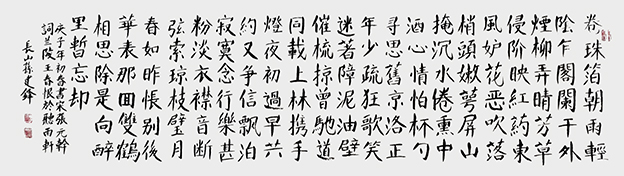 卷珠箔朝雨輕
陰乍閣闌干外
煙柳弄晴芳草
侵階映紅葯東
風妒花惡吹落
梢頭嫩萼屏山
掩沉水倦熏中
酒心情怕杯勺
尋思舊京洛正
年少疏狂歌笑
迷著障泥油壁
催梳掠曾馳道
同載上林携手
燈夜初過早共
約又争信飄泊
寂寞念行樂甚
粉淡衣襟音斷
弦索瓊枝璧月
春如昨悵別後
華表那回雙鶴
相思除是向醉
里暫忘却
庚子年初春書宋張元幹
詞蘭陵王春恨於聽雨軒
長山孫建鋒